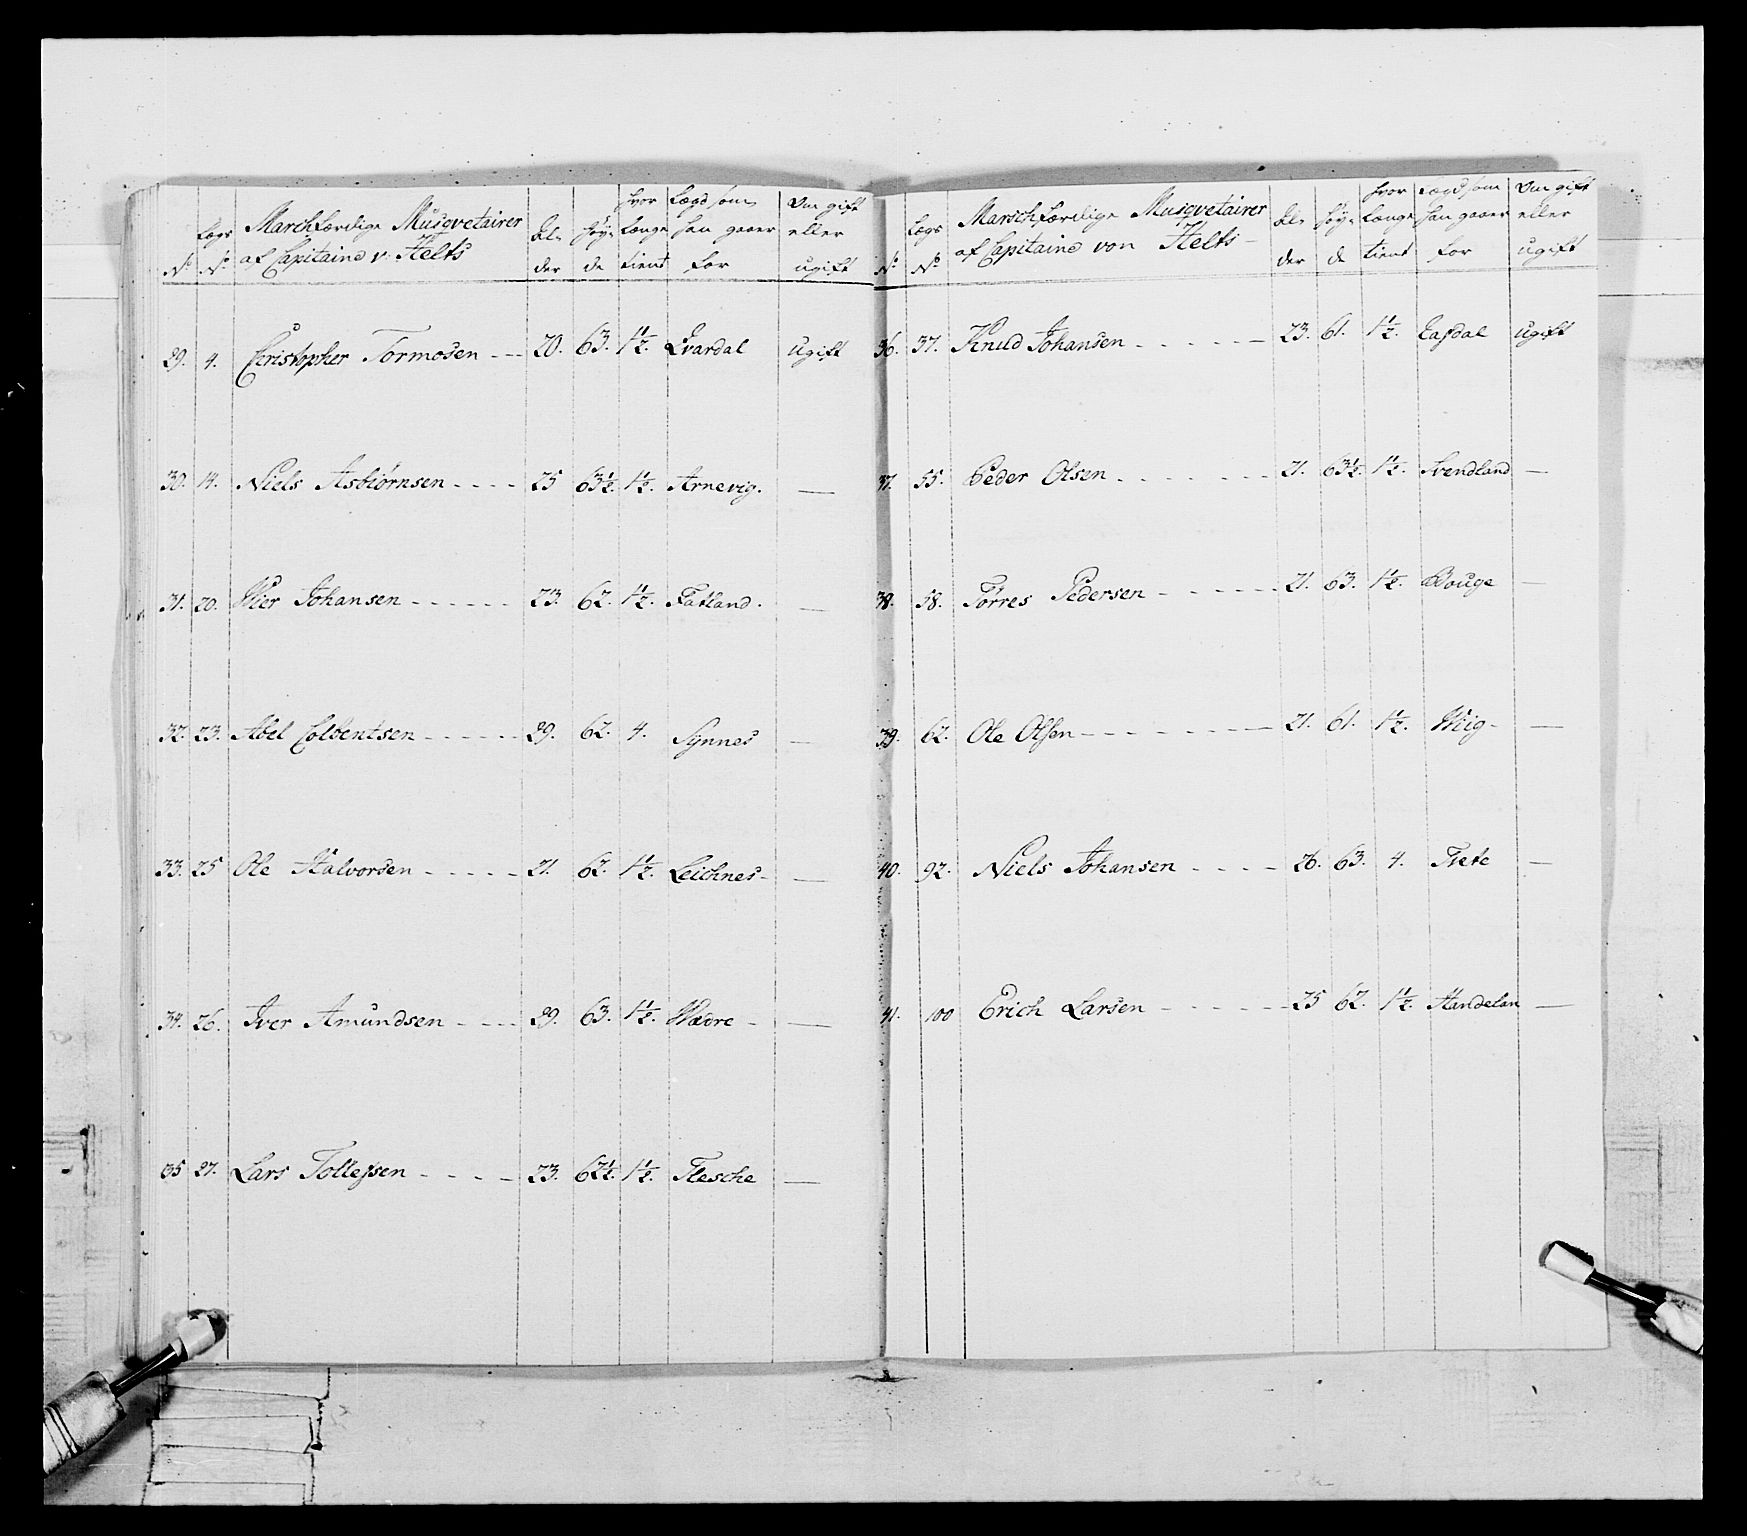 N° Lægs N° Marchfærdige Musqvetairer af Capitaine v: Helts Al= der Høy= de hvor Længe tient Lægd som han gaaer for Om gift eller ugift
29. 4. Christopher Tormosen --- 20. 63. 1½. Qvardal Ugift
30. 14. Niels Asbiørnsen ---- 25 63½. 1½. Arnevig. —
31. 20. Wier Johansen ------ 23. 62. 1½. Fatland. —
32. 23. Abel Colbentsen ------ 29. 62. 4. Synnes —
33. 25 Ole Halvorsen ----- 21. 62. 1½. Leichnes- —
34. 26. Iver Amundsen ---- 29. 63. 1½. Wadre - —
35 27. Lars Tollefsen ---- 23. 62½. 1½. Flesche —
N° Lægs N° Marschfærdige Musqvetairer af Capitaine von Helts Al= der Høy= de hvor Længe tient Lægd som han gaaer for Om gift eller ugift
36. 37. Knud Johansen ------ 23. 61. 1½. Eafdal Ugift
37. 55. Peder Olsen ------- 21. 63½. 1½. Svendland —
38. 58. Tørres Pedersen ------ 21. 63. 1½. Bouge —
39. 62. Ole Olsen -------- 21. 61. 1½. Wiig- —
40. 92. Niels Johansen ---- 26. 63. 4. Tiete —
41. 100 Erich Larsen ------ 25 62. 1½. Handelan —